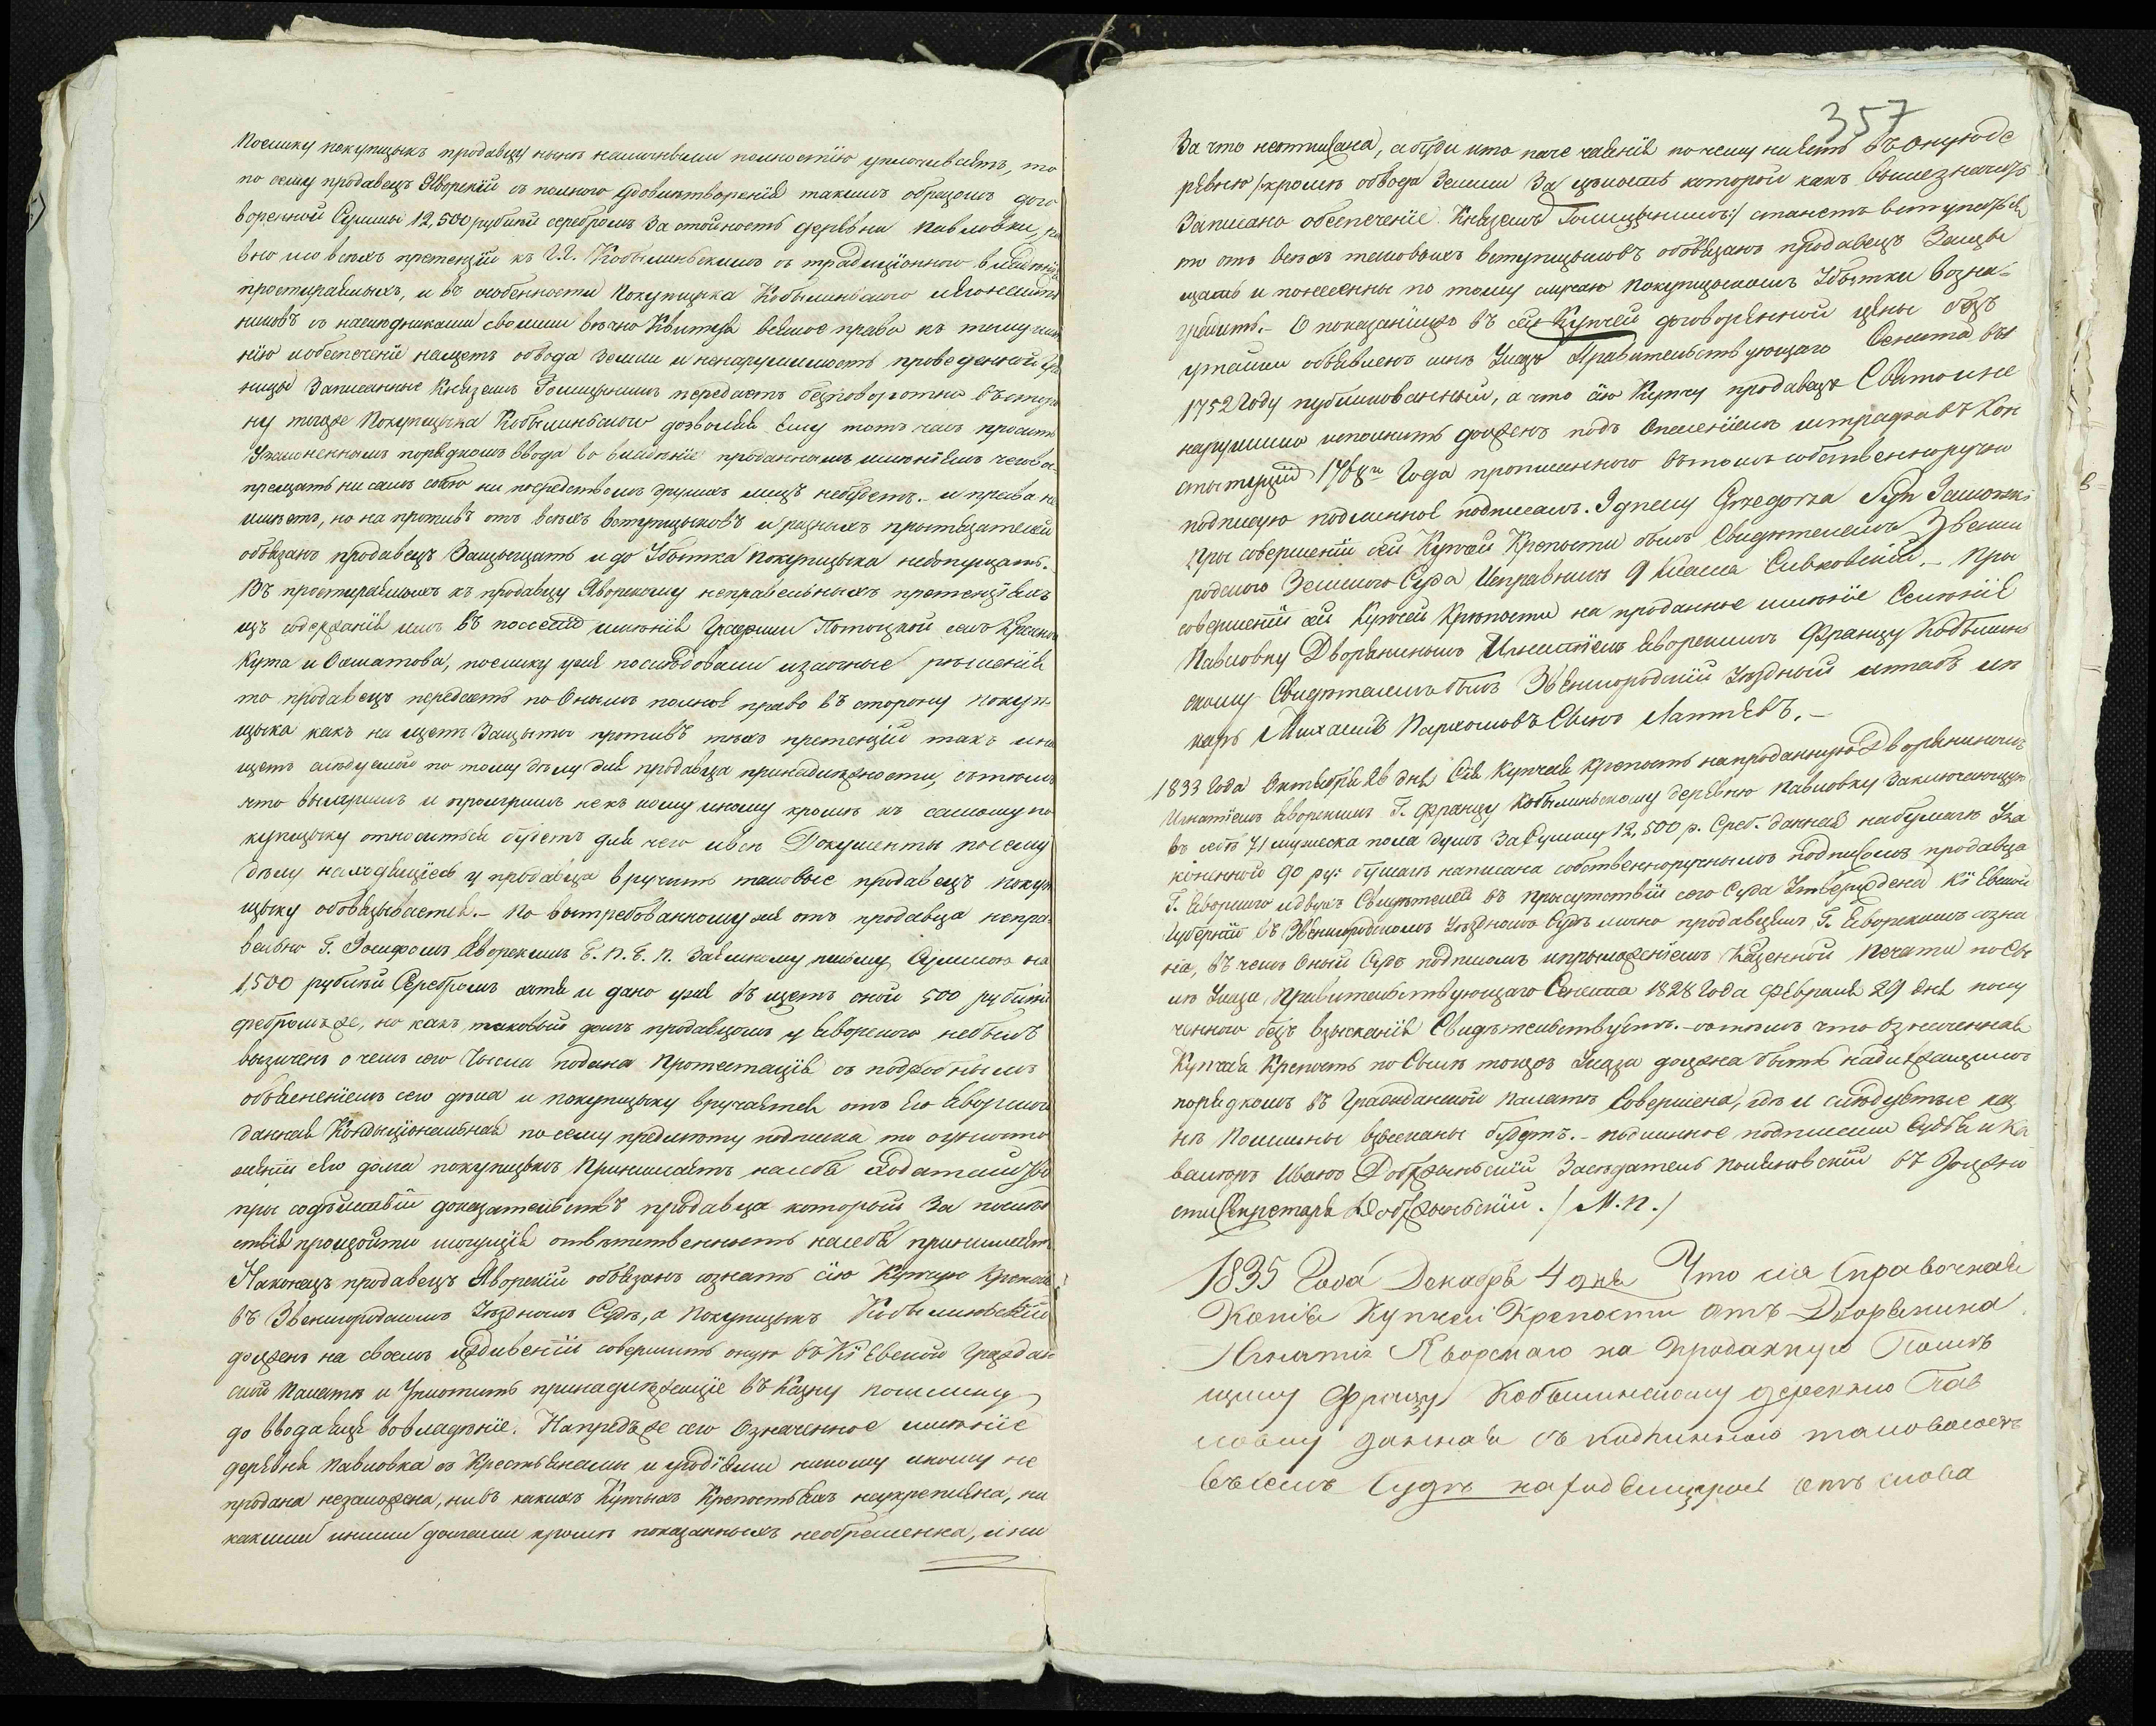 Поелику покупщыкъ продавцу нынѣ наличными полностїю уплачиваетъ, то
по сему продавецъ Яворскїй съ полного удовлетворенїя такимъ образомъ дого
воренной Суммы 12,500 рублей серебромъ За стойность деревни Павловки,
вно и о всехъ претензїй къ Г.Г. Кобылинскимъ съ традицїонного владѣнїя
простираемыхъ, и въ особенности Покупщыка Кобылинского
никовъ съ наследниками своими вѣчно Квитуя всякое право къ тому имѣ
нїю и обеспеченїе нащетъ обвода Земли и ненарушимость проведенной гра
ницы Записанные Княземъ Голицынымъ передаетъ безповоротно въ сторо
ну тогоже Покупщыка Кобылинского дозволяя Ему тотъ часъ просить
Узаконеннымъ порядкомъ ввода во владѣнїе проданнымъ имѣнїемъ чего во
прещать ни самъ собою ни посредствомъ другихъ лицъ небудетъ. и права не
имѣетъ, но на противъ отъ всѣхъ вступщыковъ и разныхъ простицателей
обязанъ продавецъ Защыщать и до Убытка покупщыка недопущать.
Въ простираемыхъ къ продавцу Яворскому неправельныхъ претензїяхъ
изъ содержанїя имъ въ поссесїи имѣнїя Графини Потоцкой селъ Красного
Кута и Охматова, поелику уже последовали изычные рѣшенїя
то продавецъ передаетъ по Онымъ полное право въ сторону покуп
щыка какъ на щетъ Защыты противъ тѣхъ претензїй такъ и на
щетъ следуемой по тому дѣлу для продавца принадлежности, съ тѣмъ
что выигрышъ и проигрышъ не къ кому иному кромѣ къ самому по
купщыку относиться будетъ для чего и всѣ Документы по сему
дѣлу находящїеся у продавца вручить таковые продавецъ покуп
щыку обовязывается. По востребованному же отъ продавца непра
вельно Г. Іосифомъ Яворскимъ Б.П.Е.П. Заемному письму Суммою на
1,500 рублей Серебромъ хотя и дано уже въ щетъ оной 500 рублей
серебромъже, но какъ таковый долгъ продавцомъ у Яворского небылъ
взыченъ о чемъ сего Числа подана Протестацїя съ подробнымъ
объясненїемъ сего дѣла и покупщыку вручается отъ Его Яворского
данная Кондыцїональная по сему предмѣту подписка то
ленїи сего долга покупщыкъ Принимаетъ насебя Ходатайство
при содѣйствїи доказательствъ продавца который За послѣд
ствїя произойти могущїя отвѣтственность насебя принимаетъ.
Наконецъ продавецъ Яворскїй обязанъ сознать сїю Купчую Крепость
въ Звенигородскомъ Уездномъ Судѣ, а Покупщыкъ Кобылинскїй
долженъ на своемъ иждивенїи совершить оную въ Кїевской Граждан
ской Палатѣ и Уплотить принадлежащїе въ Казну пошлины
до ввода Еще вовладѣнїе. Напредъже сего Означенное имѣнїе
деревня Павловка съ Крестьянами и угодїями никому иному не
продана незаложена, нивъ какихъ Купчыхъ Крепостяхъ неукреплена, ни
какими иными долгами кромѣ показанныхъ необременена, и ни
357
За что неотписана, а буди кто паче чаянїя по чему нибудь въ оную де
ревню /:кромѣ обвода Земли За цѣлость которой какъ вышезначитъ
Записано обеспеченїе Княземъ Голицынымъ:/ станетъ вступаться
то отъ всѣхъ таковыхъ вступщыковъ обовязанъ продавецъ Защы
щать и понесенны по тому случаю Покупщыкомъ Убытки возна
градить. О показанїи въ сей Купчей договоренной цѣны безъ
утайки объявленъ имъ Указъ Правительствующаго Сената въ
1752 Году публикованный, а что сїю Купчу продавецъ Свято и не
нарушимо исполнить долженъ подъ Опасенїемъ штрафовъ Кон
стытуцїи 1768го Года прописанного въ томъ собственноручно
подписую подлинное подписалъ. Ignacy Grzegorza Syn Jaworski
При совершенїи сей Купчей Крепости былъ Свидетелемъ Звени
родского Земского Суда Исправникъ 9 Класса Сивковскїй. – При
совершенїи сей Купчей Крѣпости на проданное имѣнїе Селенїе
Павловку Дворяниномъ Игнатїемъ Яворскимъ Францу Кобылин
скому Свидетелемъ былъ Звенигородскїй Уездный штабъ ле
карь Михаилъ Пархомовъ Сынъ Лаптевъ. –
1833 Года Октября 26 дня Сїя Купчая Крепость на проданную Дворяниномъ
Игнатїемъ Яворскимъ Г. Францу Кобылинскому деревню Павловку Заключающую
въ себѣ 71 мужеска пола душъ За Сумму 12,500 р. Среб. данная набумагѣ Уза
коненной 90 ру: бумагѣ написана собственноручнымъ подписомъ продавца
Г. Яворского и двухъ Свидетелей въ присутствїи сего Суда Утверждена Кїевской
Губернїи въ Звенигородскомъ Уездномъ Судѣ лично продавцемъ Г. Яворскимъ созна
на, въ чемъ Оный Судъ подписомъ и приложенїемъ Казенной Печати по Си
лѣ Указа Правительствующаго Сената 1828 Года Февраля 29 дня полу
ченного безъ взысканїя Свидетельствуетъ. – съ тѣмъ что означенная
Купчая Крепость по Силѣ тогожъ Указа должна быть надлежащимъ
порядкомъ въ Гражданской Палатѣ Совершена, гдѣ и следуемые каз
нѣ Пошлины взысканы будутъ. – подлинное подписали Судья и Ка
валеръ Иванъ Добржынскїй Заседатель въ должно
сти Секретаря Добржынскїй. / М.П. /
1835 Года Декабря 4 дня Что сїя Справочная
Копїя Купчей Крепости отъ Дворянина
Игнатїя Яворскаго на проданную Помѣ
щику Францу Кобылинскому деревню Пав
ловку данная съ подлинною таковоюжъ
въ семъ Судѣ находящуюся отъ слова